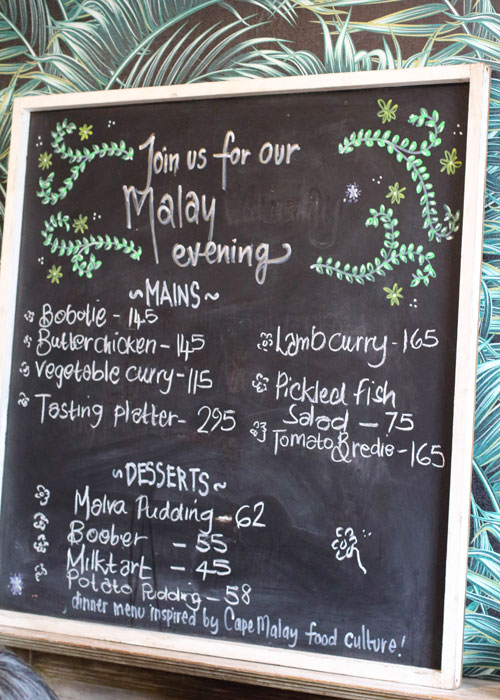 Join us for our
Malay
evening
~MAINS~
Bobotie - 145
Butterchicken - 145
Vegetable curry - 115
Tasting platter - 295
Lamb curry - 165
Pickled fish
Salad - 75
Tomato Bredie - 165
~DESSERTS~
Malva Pudding - 62
Boober - 55
Milktart - 45
Potato Pudding - 58
dinner menu inspired by Cape Malay food culture!